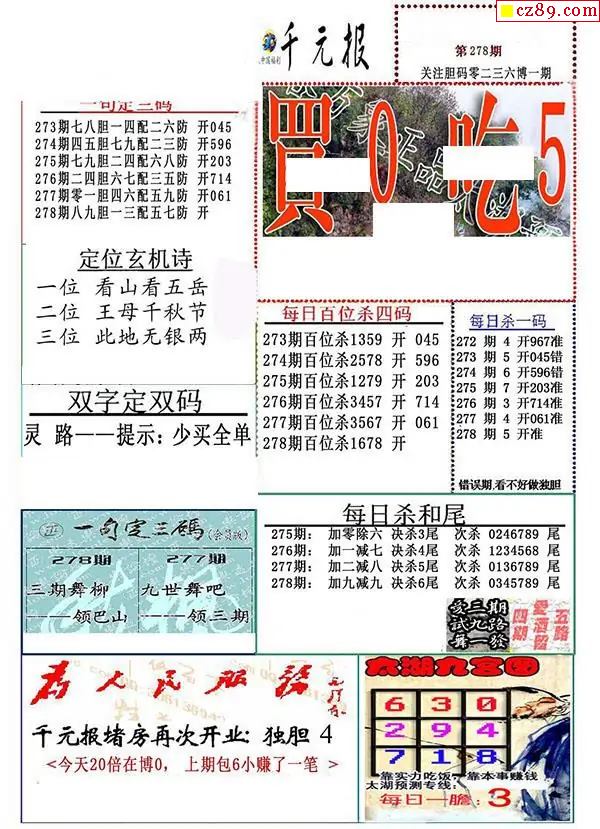 cz89.com
中国福利
千元报
第278期
关注胆码零二三六博一期
一句定三码
273期七八胆一四配二六防 开045
274期四五胆七九配二三防 开596
275期七九胆二四配六八防 开203
276期二四胆六七配三五防 开714
277期零一胆四六配五九防 开061
278期八九胆一三配五七防 开
買 0 吃 5
定位玄机诗
一位 看山看五岳
二位 王母千秋节
三位 此地无银两
每日百位杀四码
273期百位杀1359 开 045
274期百位杀2578 开 596
275期百位杀1279 开 203
276期百位杀3457 开 714
277期百位杀3567 开 061
278期百位杀1678 开
每日杀一码
272 期 4 开967准
273 期 5 开045错
274 期 6 开596错
275 期 7 开203准
276 期 3 开714准
277 期 4 开061准
278 期 5 开准
错误期,看不好做独胆
双字定双码
灵 路——提示：少买全单
每日杀和尾
275期: 加零除六 决杀3尾 次杀 0246789 尾
276期: 加一减七 决杀4尾 次杀 1234568 尾
277期: 加二减八 决杀5尾 次杀 0136789 尾
278期: 加九减九 决杀6尾 次杀 0345789 尾
一句定三碼(会员版)
278期
277期
三期舞柳
——领巴山
九世舞吧
——领三期
受三期
試九路
舞一發
四期
愛酒段
五路
为人民服务
千元报堵房再次开业: 独胆 4
<今天20倍在博0, 上期包6小赚了一笔 >
太湖九宫图
6 3 0
2 9 4
7 1 8
靠实力吃饭, 靠本事赚钱
太湖预测专线:
每日一胆: 3